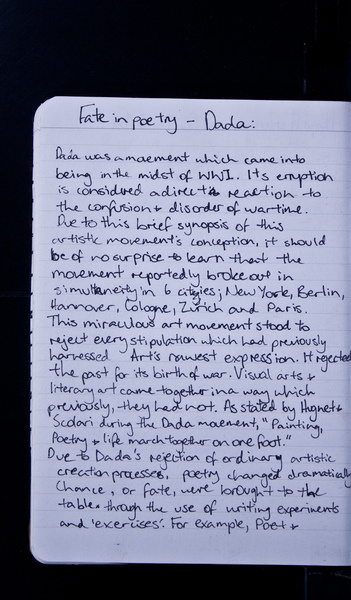 Fate in poetry - Dada:
Dada was a movement which came into
being in the midst of WWI. Its eruption
is considered a direct reaction to
the confusion + disorder of wartime.
Due to this brief synopsis of this
artistic movement's conception, it should
be of no surprise to learn that the
movement reportedly broke out in
simultaneity in 6 cities; New York, Berlin,
Hannover, Cologne, Zurich and Paris.
This miraculous art movement stood to
reject every stipulation which had previously
harnessed Art's rawest expression. It rejected
the past for its birth of war. Visual arts +
literary art came together in a way which
previously, they had not. As stated by Hugnet +
Scolari during the Dada movement, "Painting,
Poetry + life march together on one foot."
Due to Dada's rejection of ordinary artistic
creation processes, poetry changed dramatically
Chance, or fate, were borought to the
table through the use of writing experiments
and 'exercises'. For example, Poet +